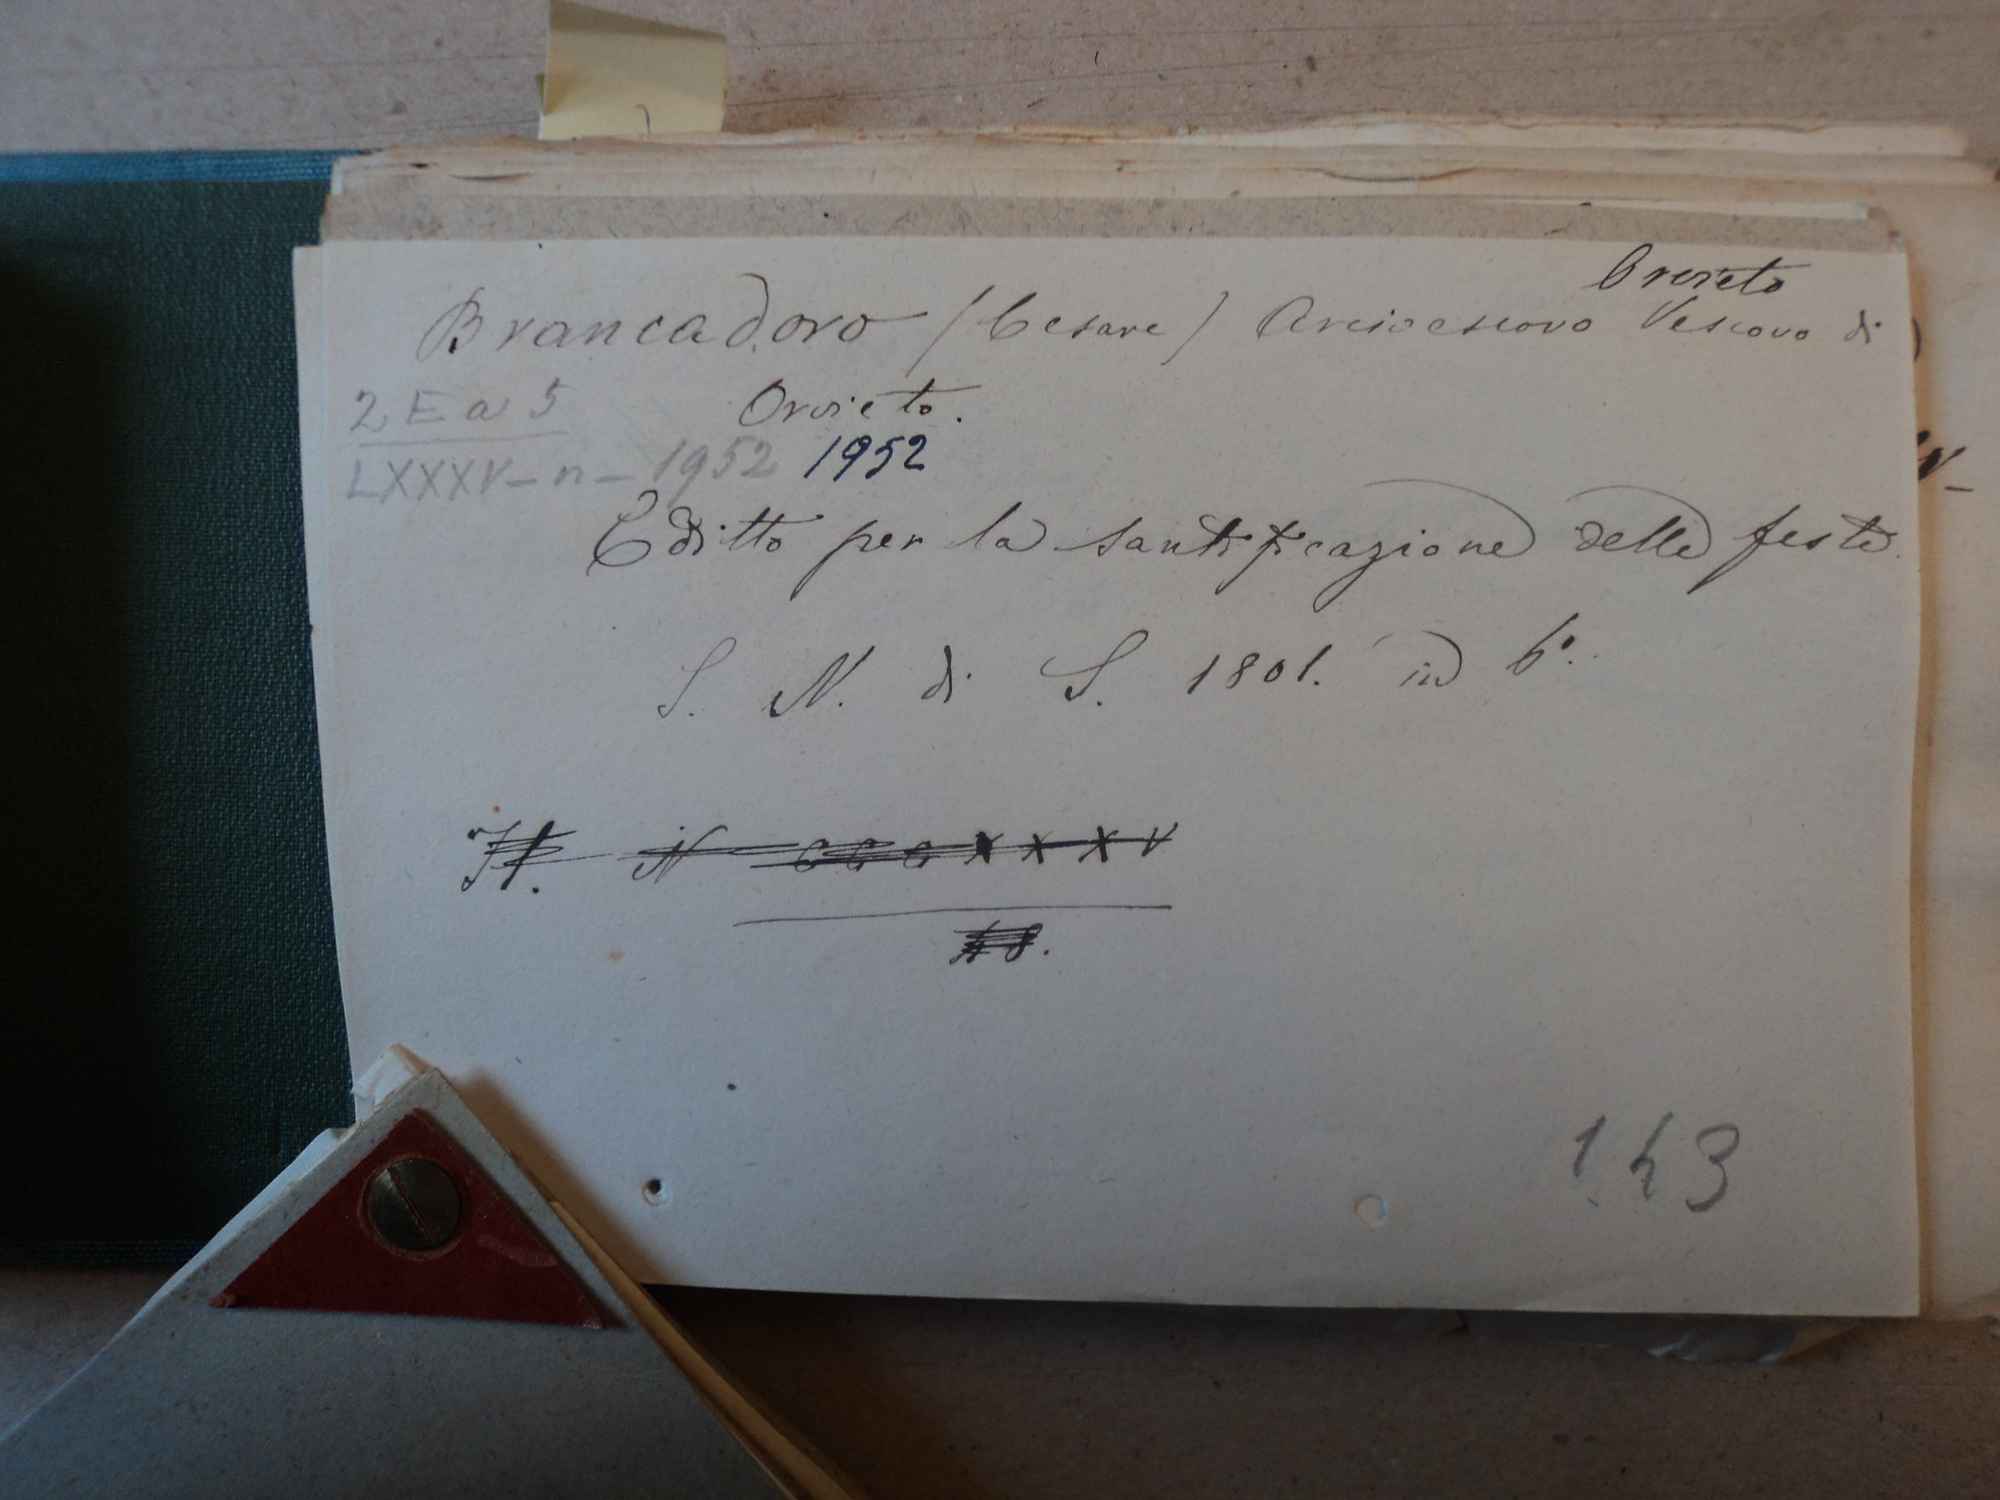 Orvieto
Brancadoro (Cesare) Arcivescovo Vescovo di
Orvieto.
2 E a 5
LXXXV-n-1952 1952
Editto per la santificazione delle feste.
S. N. di S. 1801. in 6°.
H. N CCCXXXV
48.
143